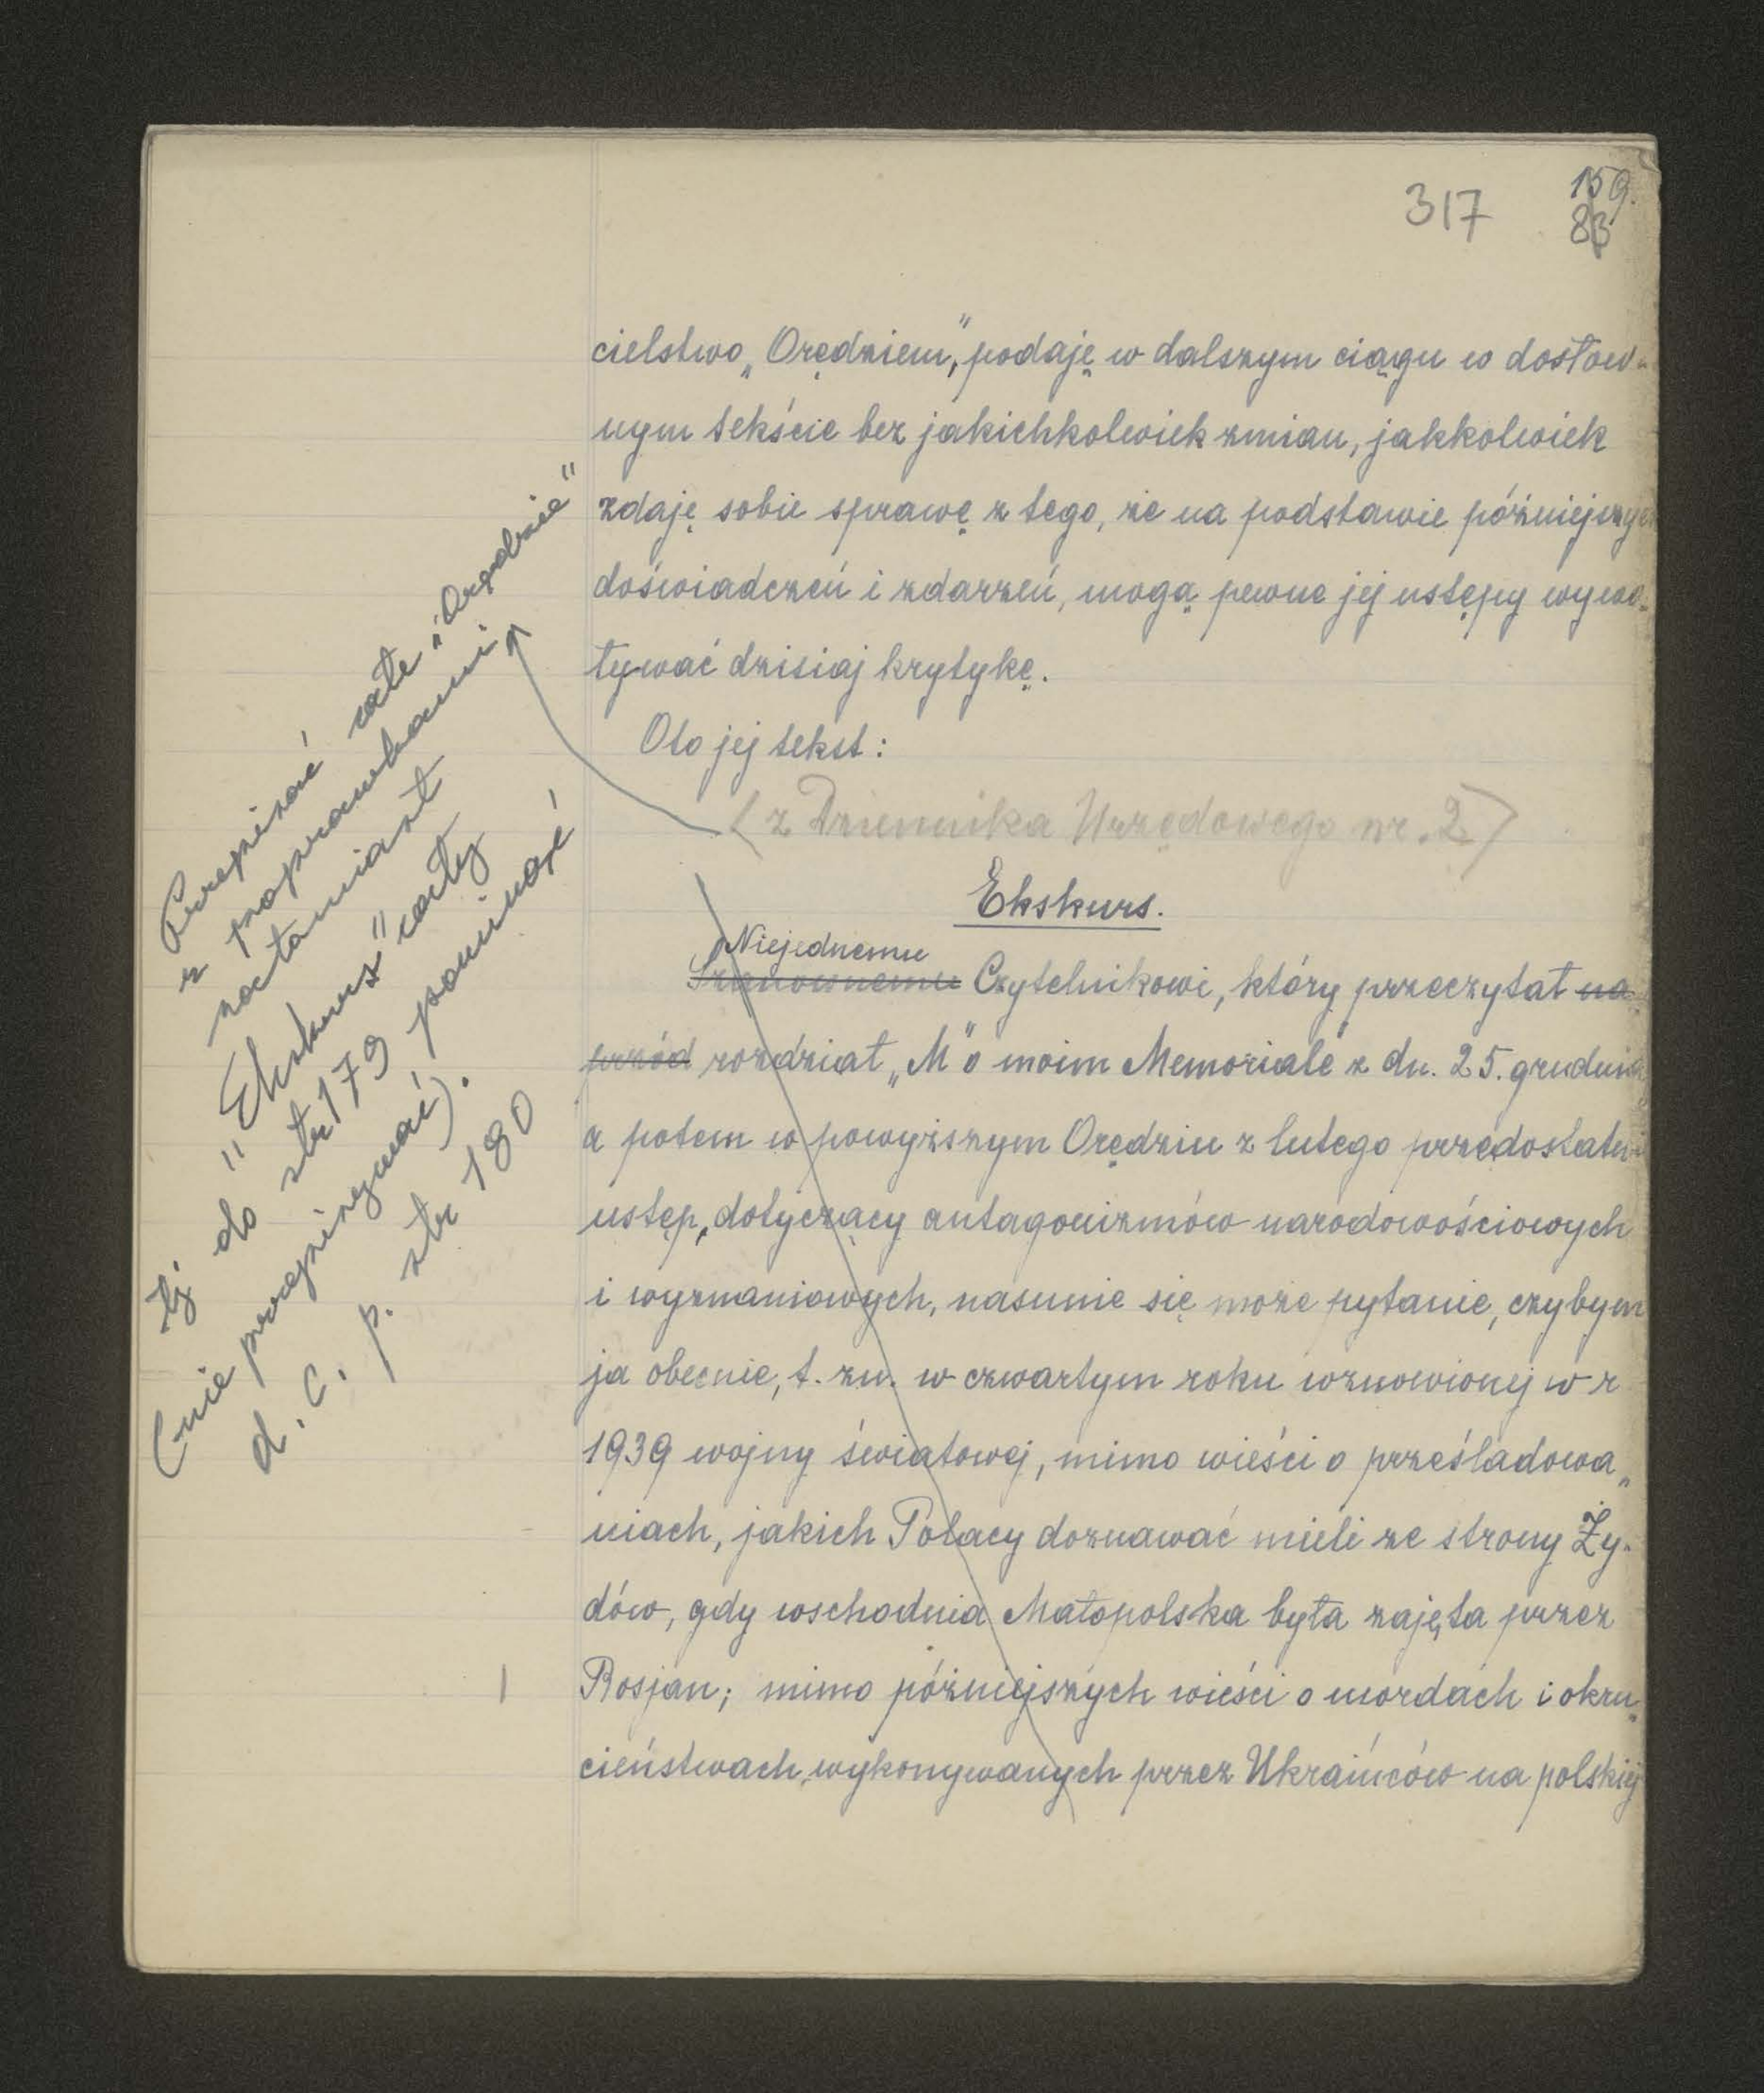 317
159.
83
cielstwo „Orędziem”, podaję w dalszym ciągu w dosłow-
nym tekście bez jakichkolwiek zmian, jakkolwiek
zdaję sobie sprawę z tego, że na podstawie późniejszych
doświadczeń i zdarzeń, mogą pewne jej ustępy wywo-
ływać dzisiaj krytykę.
Oto jej tekst:
(z Dziennika Urzędowego nr. 2)
Ekskurs.
Niejednemu
Szanownemu Czytelnikowi, który przeczytał na-
przód rozdział „M” o moim Memoriale z dn. 25. grudnia
a potem w powyższym Orędziu z lutego przedostatni
ustęp, dotyczący antagonizmów narodowościowych
i wyznaniowych, nasunie się może pytanie, czybym
ja obecnie, t. zn. w czwartym roku wznowionej w r
1939 wojny światowej, mimo wieści o prześladowa-
niach, jakich Polacy doznawać mieli ze strony Ży-
dów, gdy wschodnia Małopolska była zajęta przez
Rosjan; mimo późniejszych wieści o mordach i okru-
cieństwach, wykonywanych przez Ukraińców na polskiej
Przepisać całe „Orędzie”
z poprawkami
natomiast
"Ekskurs" cały
tj do str 179 pominąć
(nie przepisywać).
d. c. p. str 180